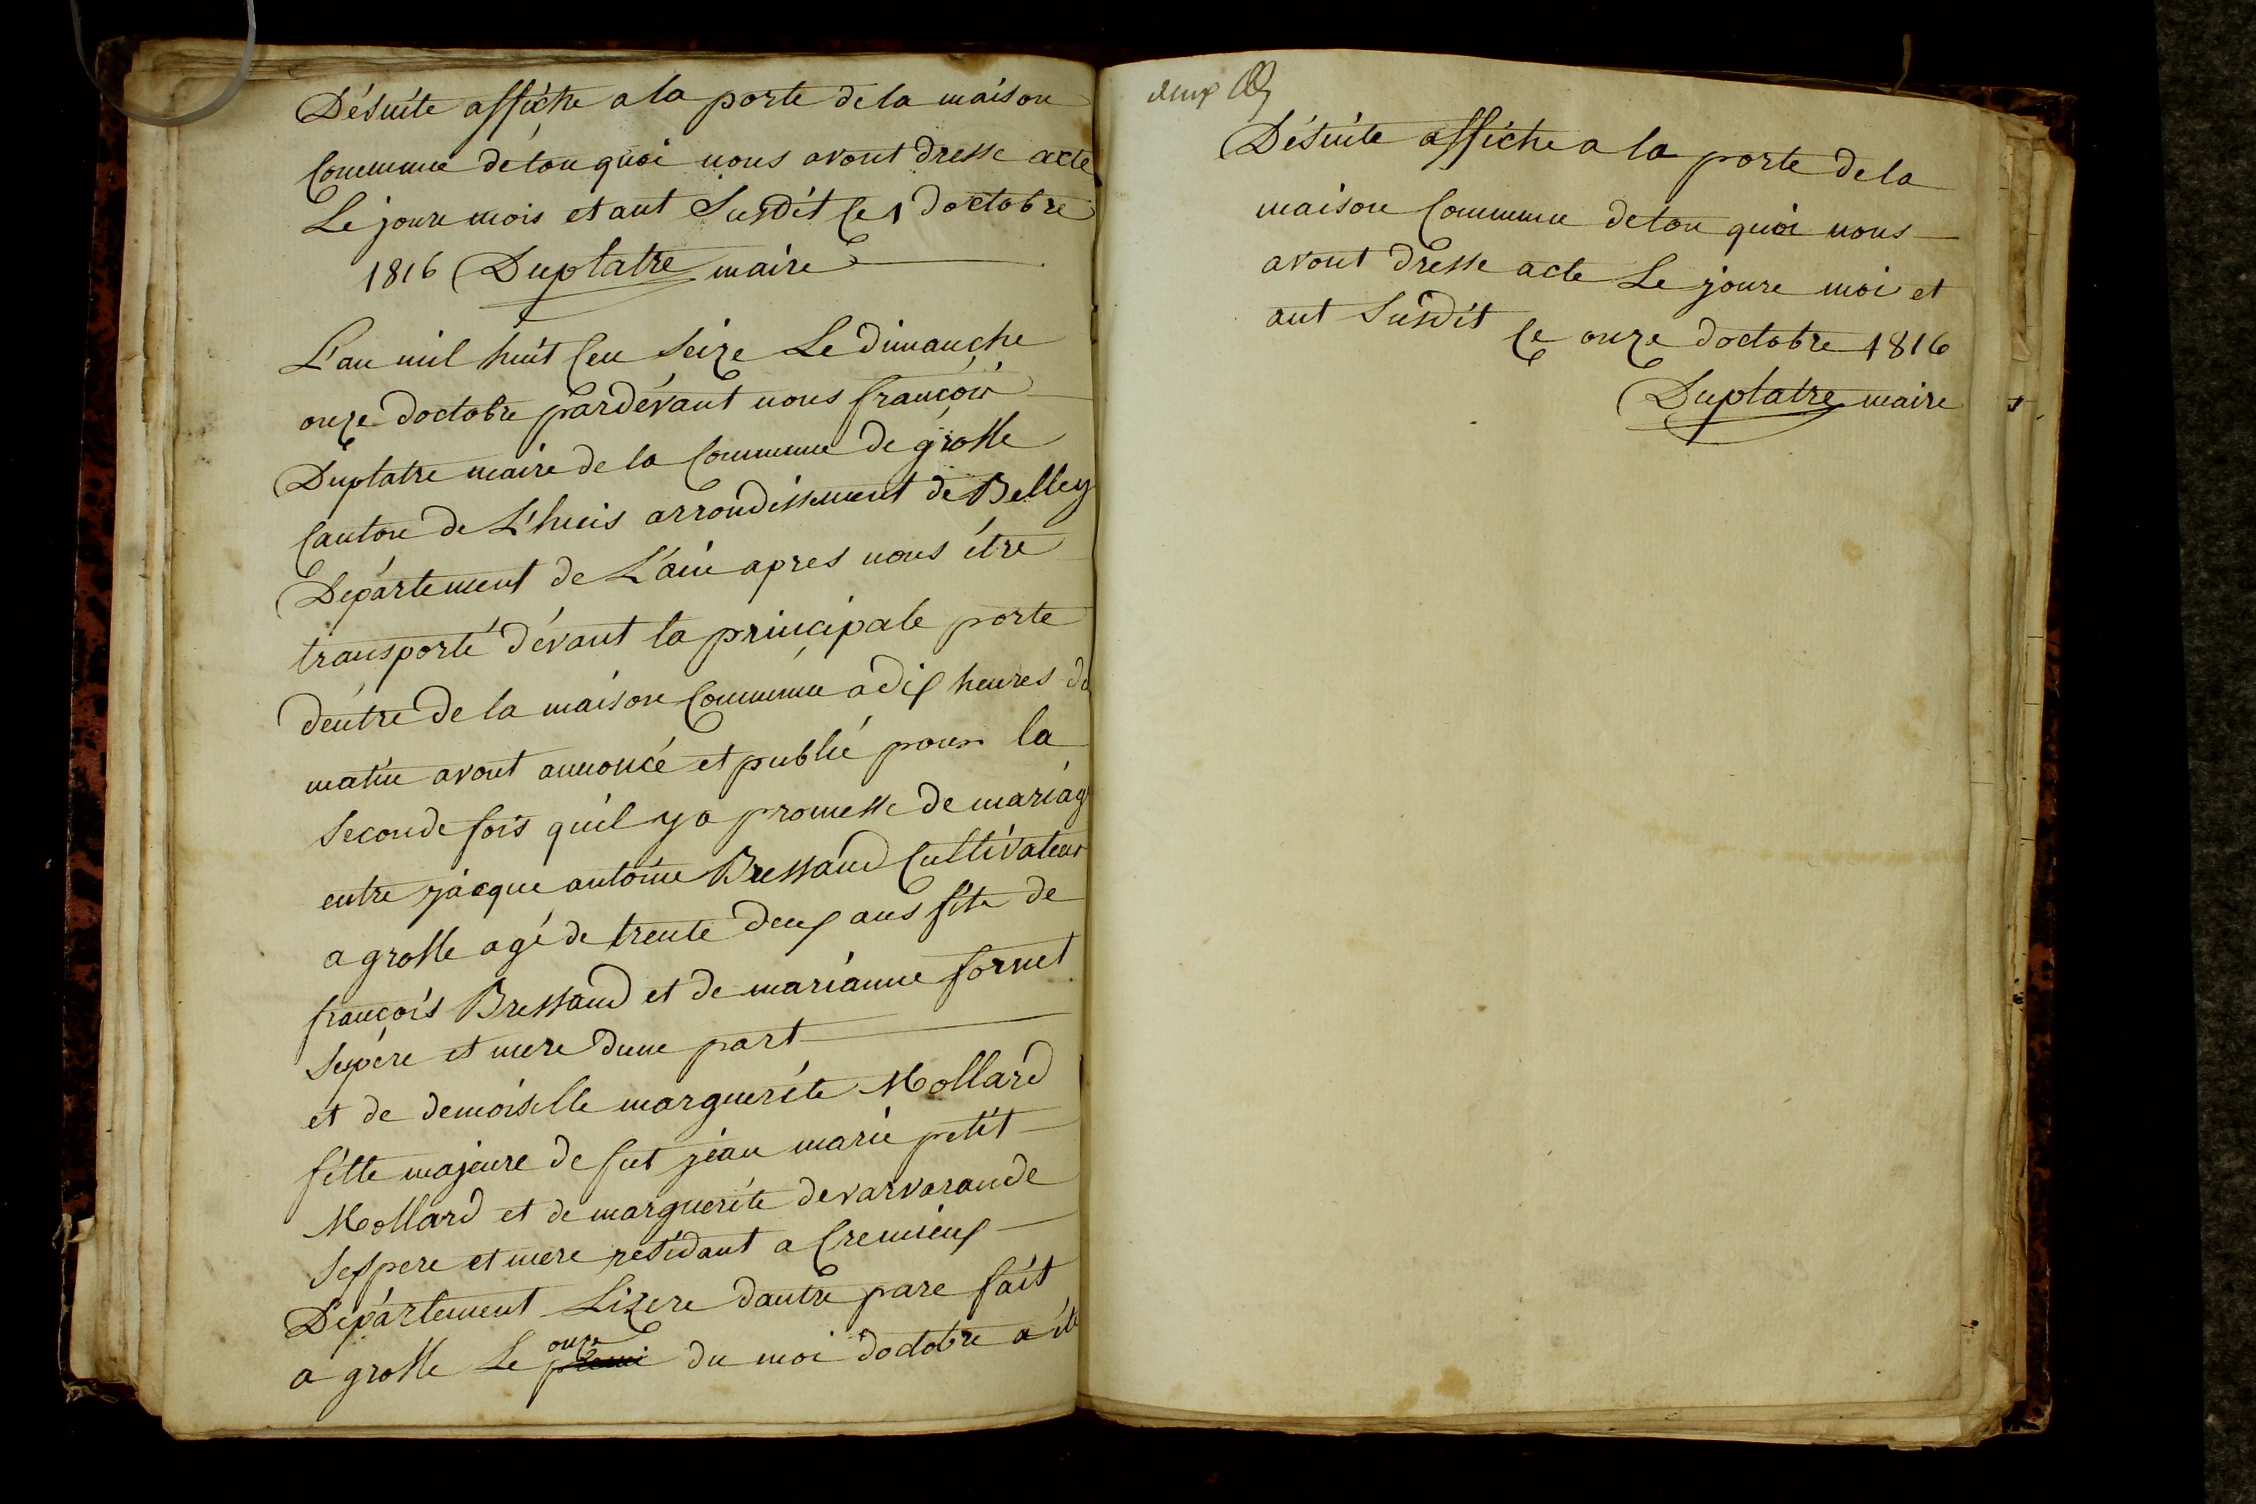 Désuite affiche a la porte de la maison
Commune de tou quoi nous avont dresse acte
Le joure mois et ant Susdit Ce 1 doctobre
1816 Duplatre maire
L'an mil huit Cen Seize Le dimanche
onze doctobre pardévant nous françois
Duplatre maire de la Commune de grosle
Canton de L'huis arrondissement de Belley
Département de L'ain apres nous étre
transporté dévant la principale porte
dentre de la maison Commune a dix heures du
matin avont annoncé et publié pour la
Seconde fois quil y a promesse de mariag
entre jacque antoine Bressand Cultivateur
a grosle agé de trente deux ans fils de
françois Bressand et de marianne fornet
Sepére et mere dune part
et de demoiselle marguerite Mollard
fille majeure de fut jean marie petit
Mollard et de marguerite devarvarande
Sespere et mere residant a Cremieux
Département Lizere dautre pare fait
a grosle Le onze premi du moi doctobre a été
Désuite affiche a la porte de la
maison Commune de tou quoi nous
avont dresse acte Le joure moi et
ant Susdit Ce onze doctobre 1816
Duplatre maire